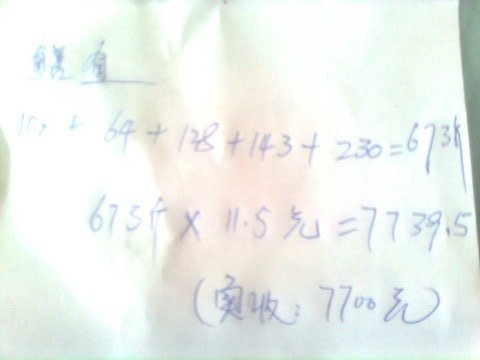 108 + 64 + 128 + 143 + 230 = 673斤
673斤 × 11.5元 = 7739.5
(实收: 7700元)